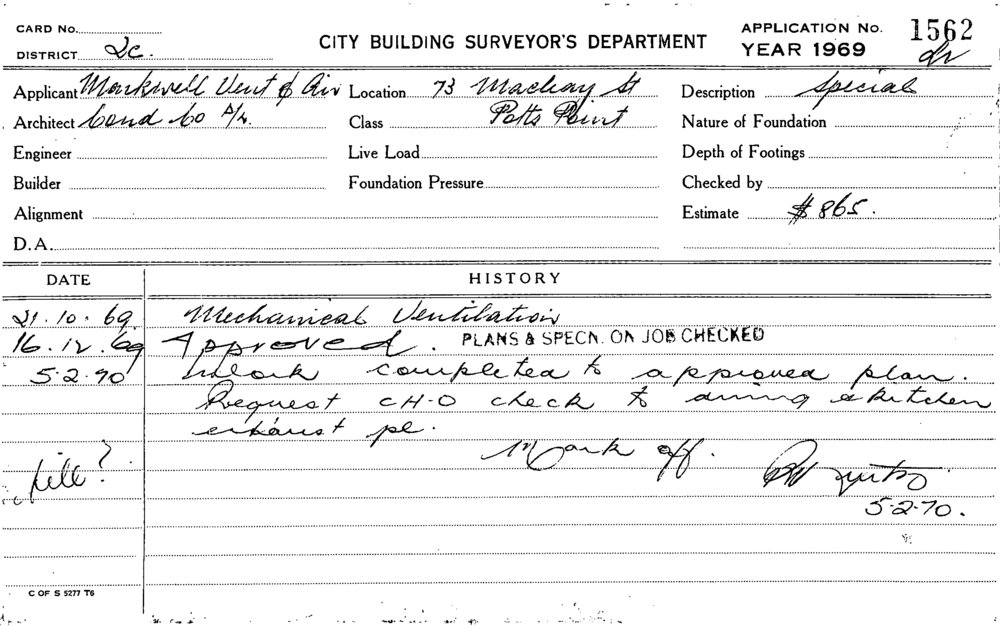 CARD No.
DISTRICT 2c.
CITY BUILDING SURVEYOR'S DEPARTMENT
APPLICATION No. 1562
YEAR 1969
Applicant Markwell Vent & Air Location 73 Macleay St Description Special
Architect Cond Co P/L. Class Potts Point Nature of Foundation
Engineer Live Load Depth of Footings
Builder Foundation Pressure Checked by
Alignment Estimate $865.
D.A.
DATE HISTORY
21.10.69 Mechanical Ventilation
16.12.69 Approved. PLANS & SPECN. ON JOB CHECKED
5.2.70 Work completed to approved plan.
Request C.H.O check to dining & kitchen
exhaust pl.
Mark off.
5.2.70.
C OF S 5277 T6